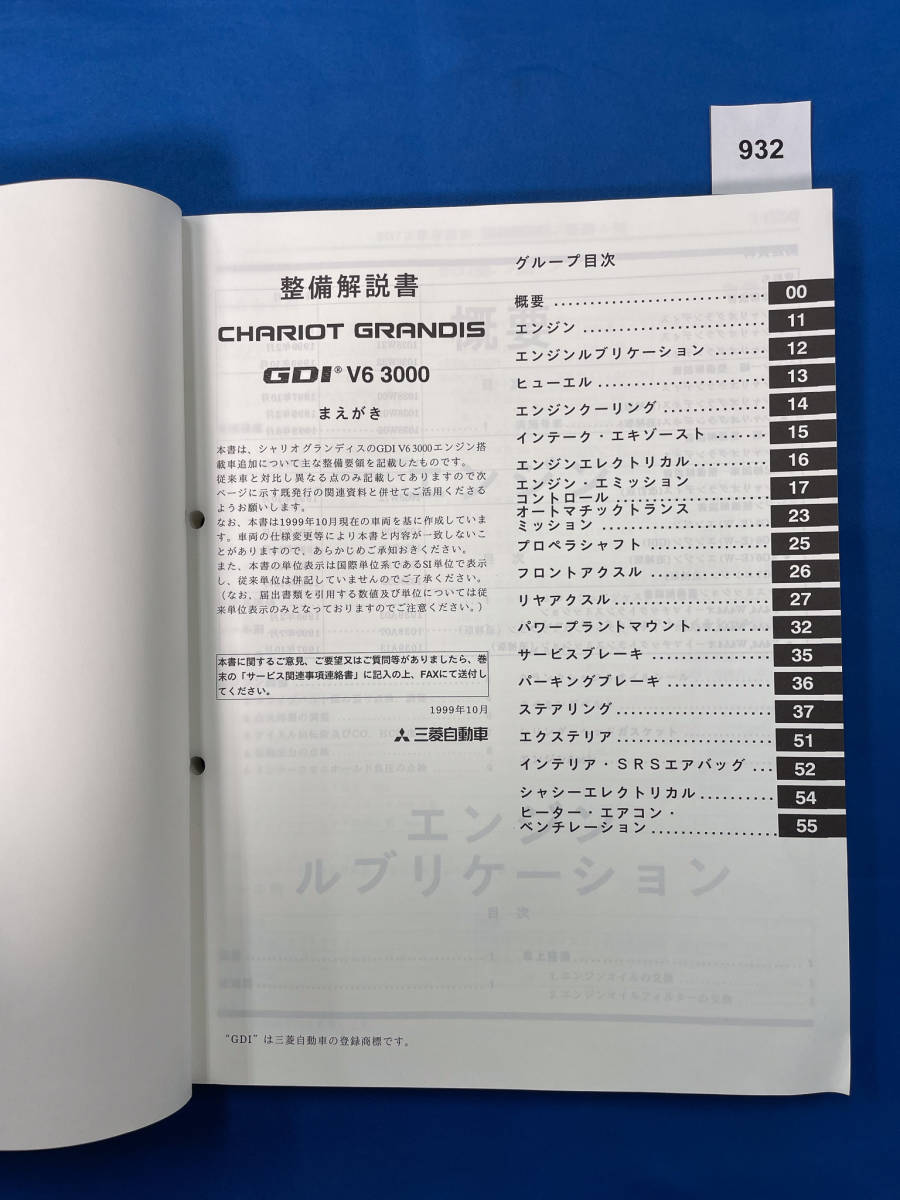 932
整備解説書
CHARIOT GRANDIS
GDI® V6 3000
まえがき
本書は、シャリオグランディスのGDI V6 3000エンジン搭
載車追加について主な整備要領を記載したものです。
従来車と対比し異なる点のみ記載してありますので次
ページに示す既発行の関連資料と併せてご活用くださる
ようお願いします。
なお、本書は1999年10月現在の車両を基に作成していま
す。車両の仕様変更等により本書と内容が一致しないこ
とがありますので、あらかじめご承知おきください。
また、本書の単位表示は国際単位系であるSI単位で表示
し、従来単位は併記していませんのでご了承ください。
（なお、届出書類を引用する数値及び単位については従
来単位表示のみとなっておりますのでご注意ください。）
本書に関するご意見、ご要望又はご質問等がありましたら、巻
末の「サービス関連事項連絡書」に記入の上、FAXにて送付し
てください。
1999年10月
三菱自動車
グループ目次
概要 .............................. 00
エンジン .......................... 11
エンジンルブリケーション ....... 12
ヒューエル ........................ 13
エンジンクーリング ............... 14
インテーク・エキゾースト ........ 15
エンジンエレクトリカル........... 16
エンジン・エミッション
コントロール ..................... 17
オートマチックトランス
ミッション ........................ 23
プロペラシャフト .................. 25
フロントアクスル ................. 26
リヤアクスル ...................... 27
パワープラントマウント........... 32
サービスブレーキ ................. 35
パーキングブレーキ ............... 36
ステアリング...................... 37
エクステリア ...................... 51
インテリア・SRSエアバッグ ... 52
シャシーエレクトリカル.......... 54
ヒーター・エアコン・
ベンチレーション ................. 55
エンジン
ルブリケーション
目 次
1.エンジンオイルの交換
2.エンジンオイルフィルターの交換
“GDI”は三菱自動車の登録商標です。